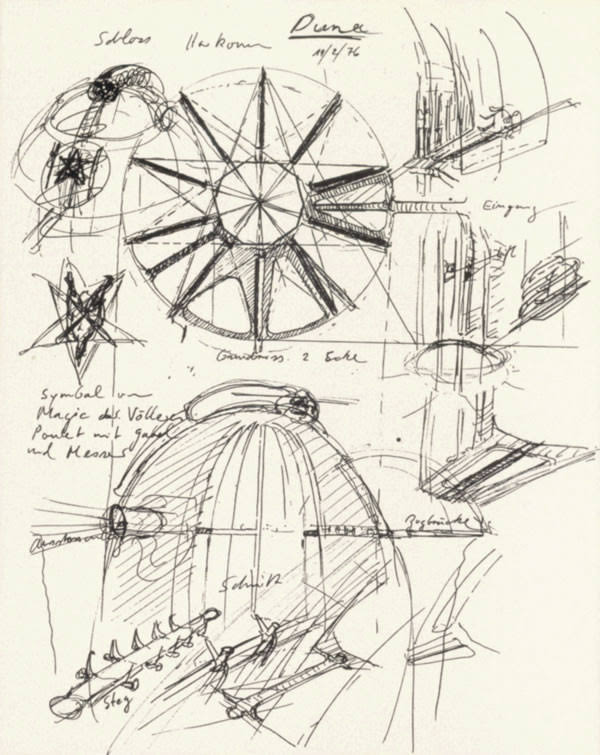 Dune
Schloss Harkonnen
11/2/76
Eingang
Lift
Grundriss. 2
Symbol von
Magie des Völlerer
Poulet mit Gabel
und Messer
Zugbrücke
Schnitt
Steg